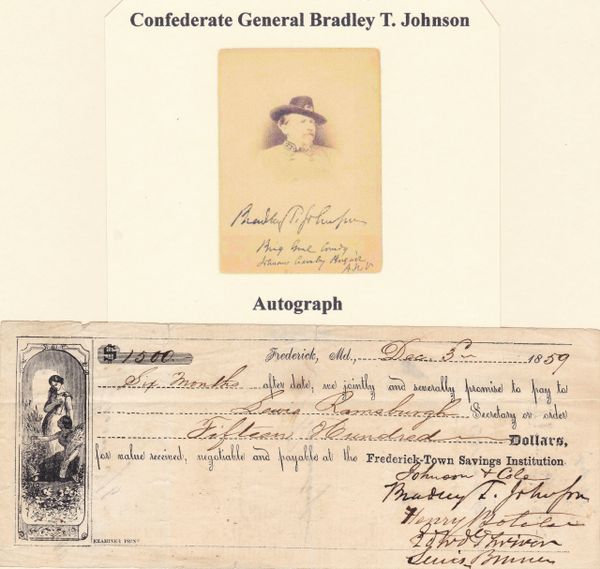 Confederate General Bradley T. Johnson
Bradley T. Johnson
Brig Genl Comdg
Johnson Cavalry Brigade
A.N.V
Autograph
$1500 Frederick, Md., Dec. 3 1859
Six Months after date, we jointly and severally promise to pay to
Lewis Ramsburgh Secretary or order
Fifteen Hundred Dollars,
for value received, negotiable and payable at the Frederick-Town Savings Institution
Johnson & Cole
Bradley T. Johnson
Henry Boteler
Lewis Bruner
EXAMINER PRINT